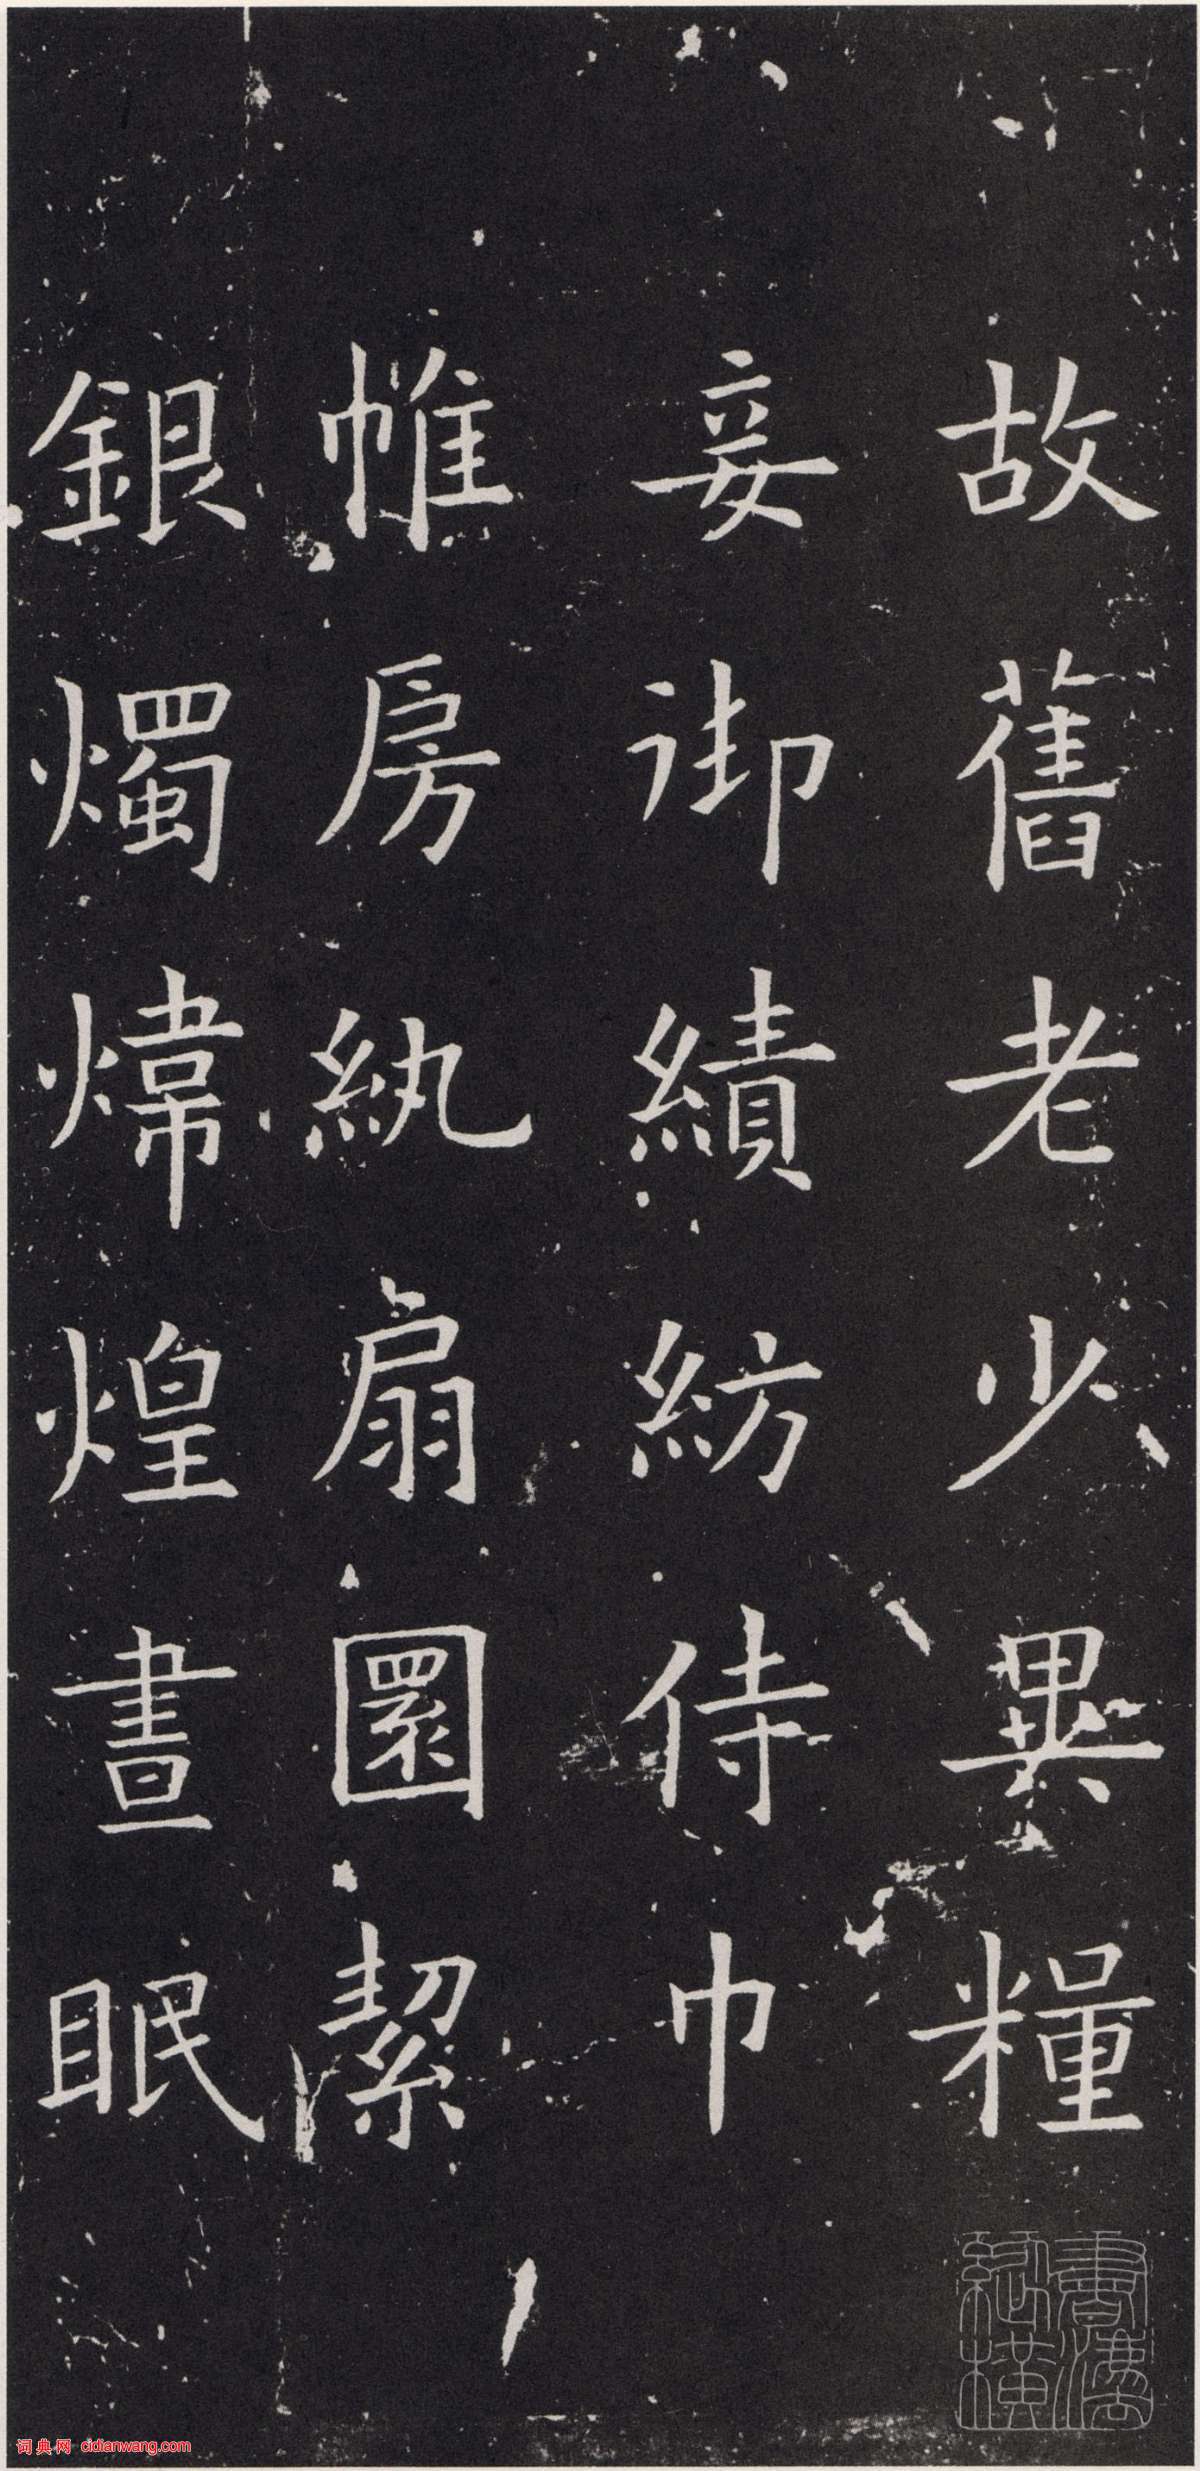 故舊老少異糧
妾御績紡侍巾
帷房紈扇圜絜
銀燭煒煌晝眠
词典网 cidianwang.com